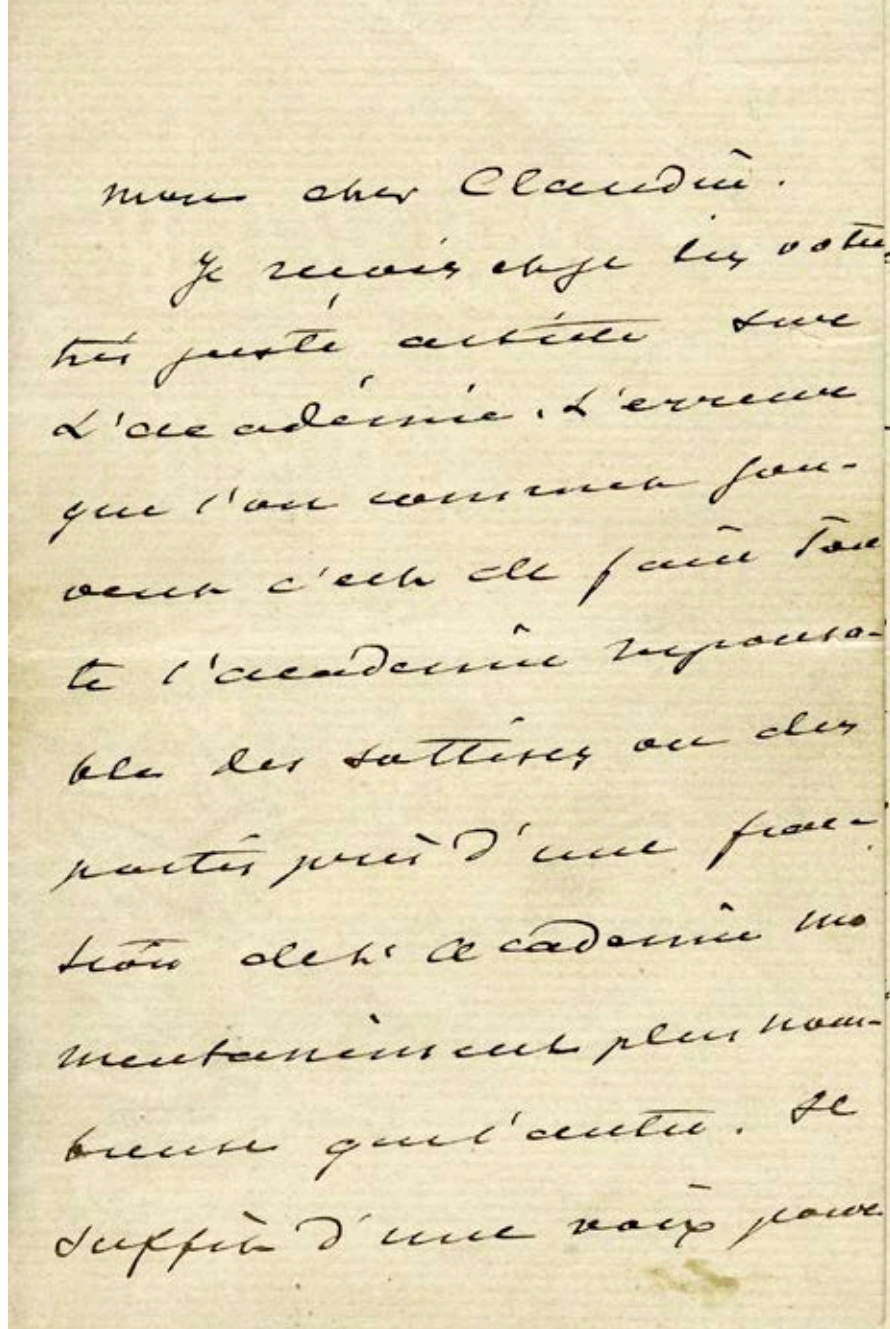 mon cher Claudin.
Je reçois et je lis votre
très juste article sur
L'académie. L'erreur
que l'on commet sou-
vent c'est de faire tou
te l'académie responsa-
ble des sottises ou des
partis pris d'une frac-
tion de l'Académie mo
mentanément plus nom-
breuse que l'autre. Il
suffit d'une voix pour